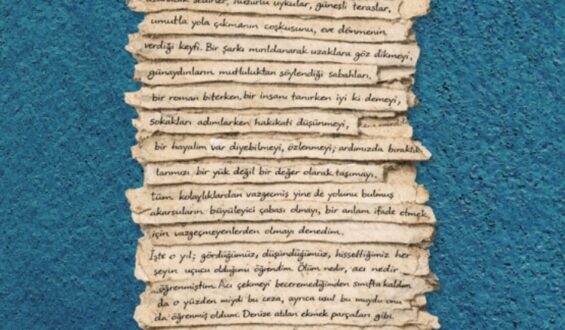 sedirler, huzurlu uykular, güneşli teraslar,
umutla yola çıkmanın coşkusunu, eve dönmenin
verdiği keyfi. Bir şarkı mırıldanarak uzaklara göz dikmeyi,
günaydınların mutluluktan söylendiği sabahları,
bir roman biterken, bir insanı tanırken iyi ki demeyi,
sokakları adımlarken hakikati düşünmeyi,
bir hayalim var diyebilmeyi, özlenmeyi, ardımızda bıraktık
larımızı bir yük değil bir değer olarak taşımayı,
tüm kolaylıklardan vazgeçmiş yine de yolunu bulmuş
akarsuların büyüleyici çabası olmayı, bir anlam ifade etmek
için vazgeçmeyenlerden olmayı denedim.
İşte o yıl; gördüğümüz, düşündüğümüz, hissettiğimiz her
şeyin uçucu olduğunu öğrendim. Ölüm nedir, acı nedir
öğrenmiştim. Acı çekmeyi beceremediğimden sınıfta kaldım
da o yüzden miydi bu ceza, ayrıca usul bu muydu onu
da öğrenmiş oldum. Denize atılan ekmek parçaları gibi